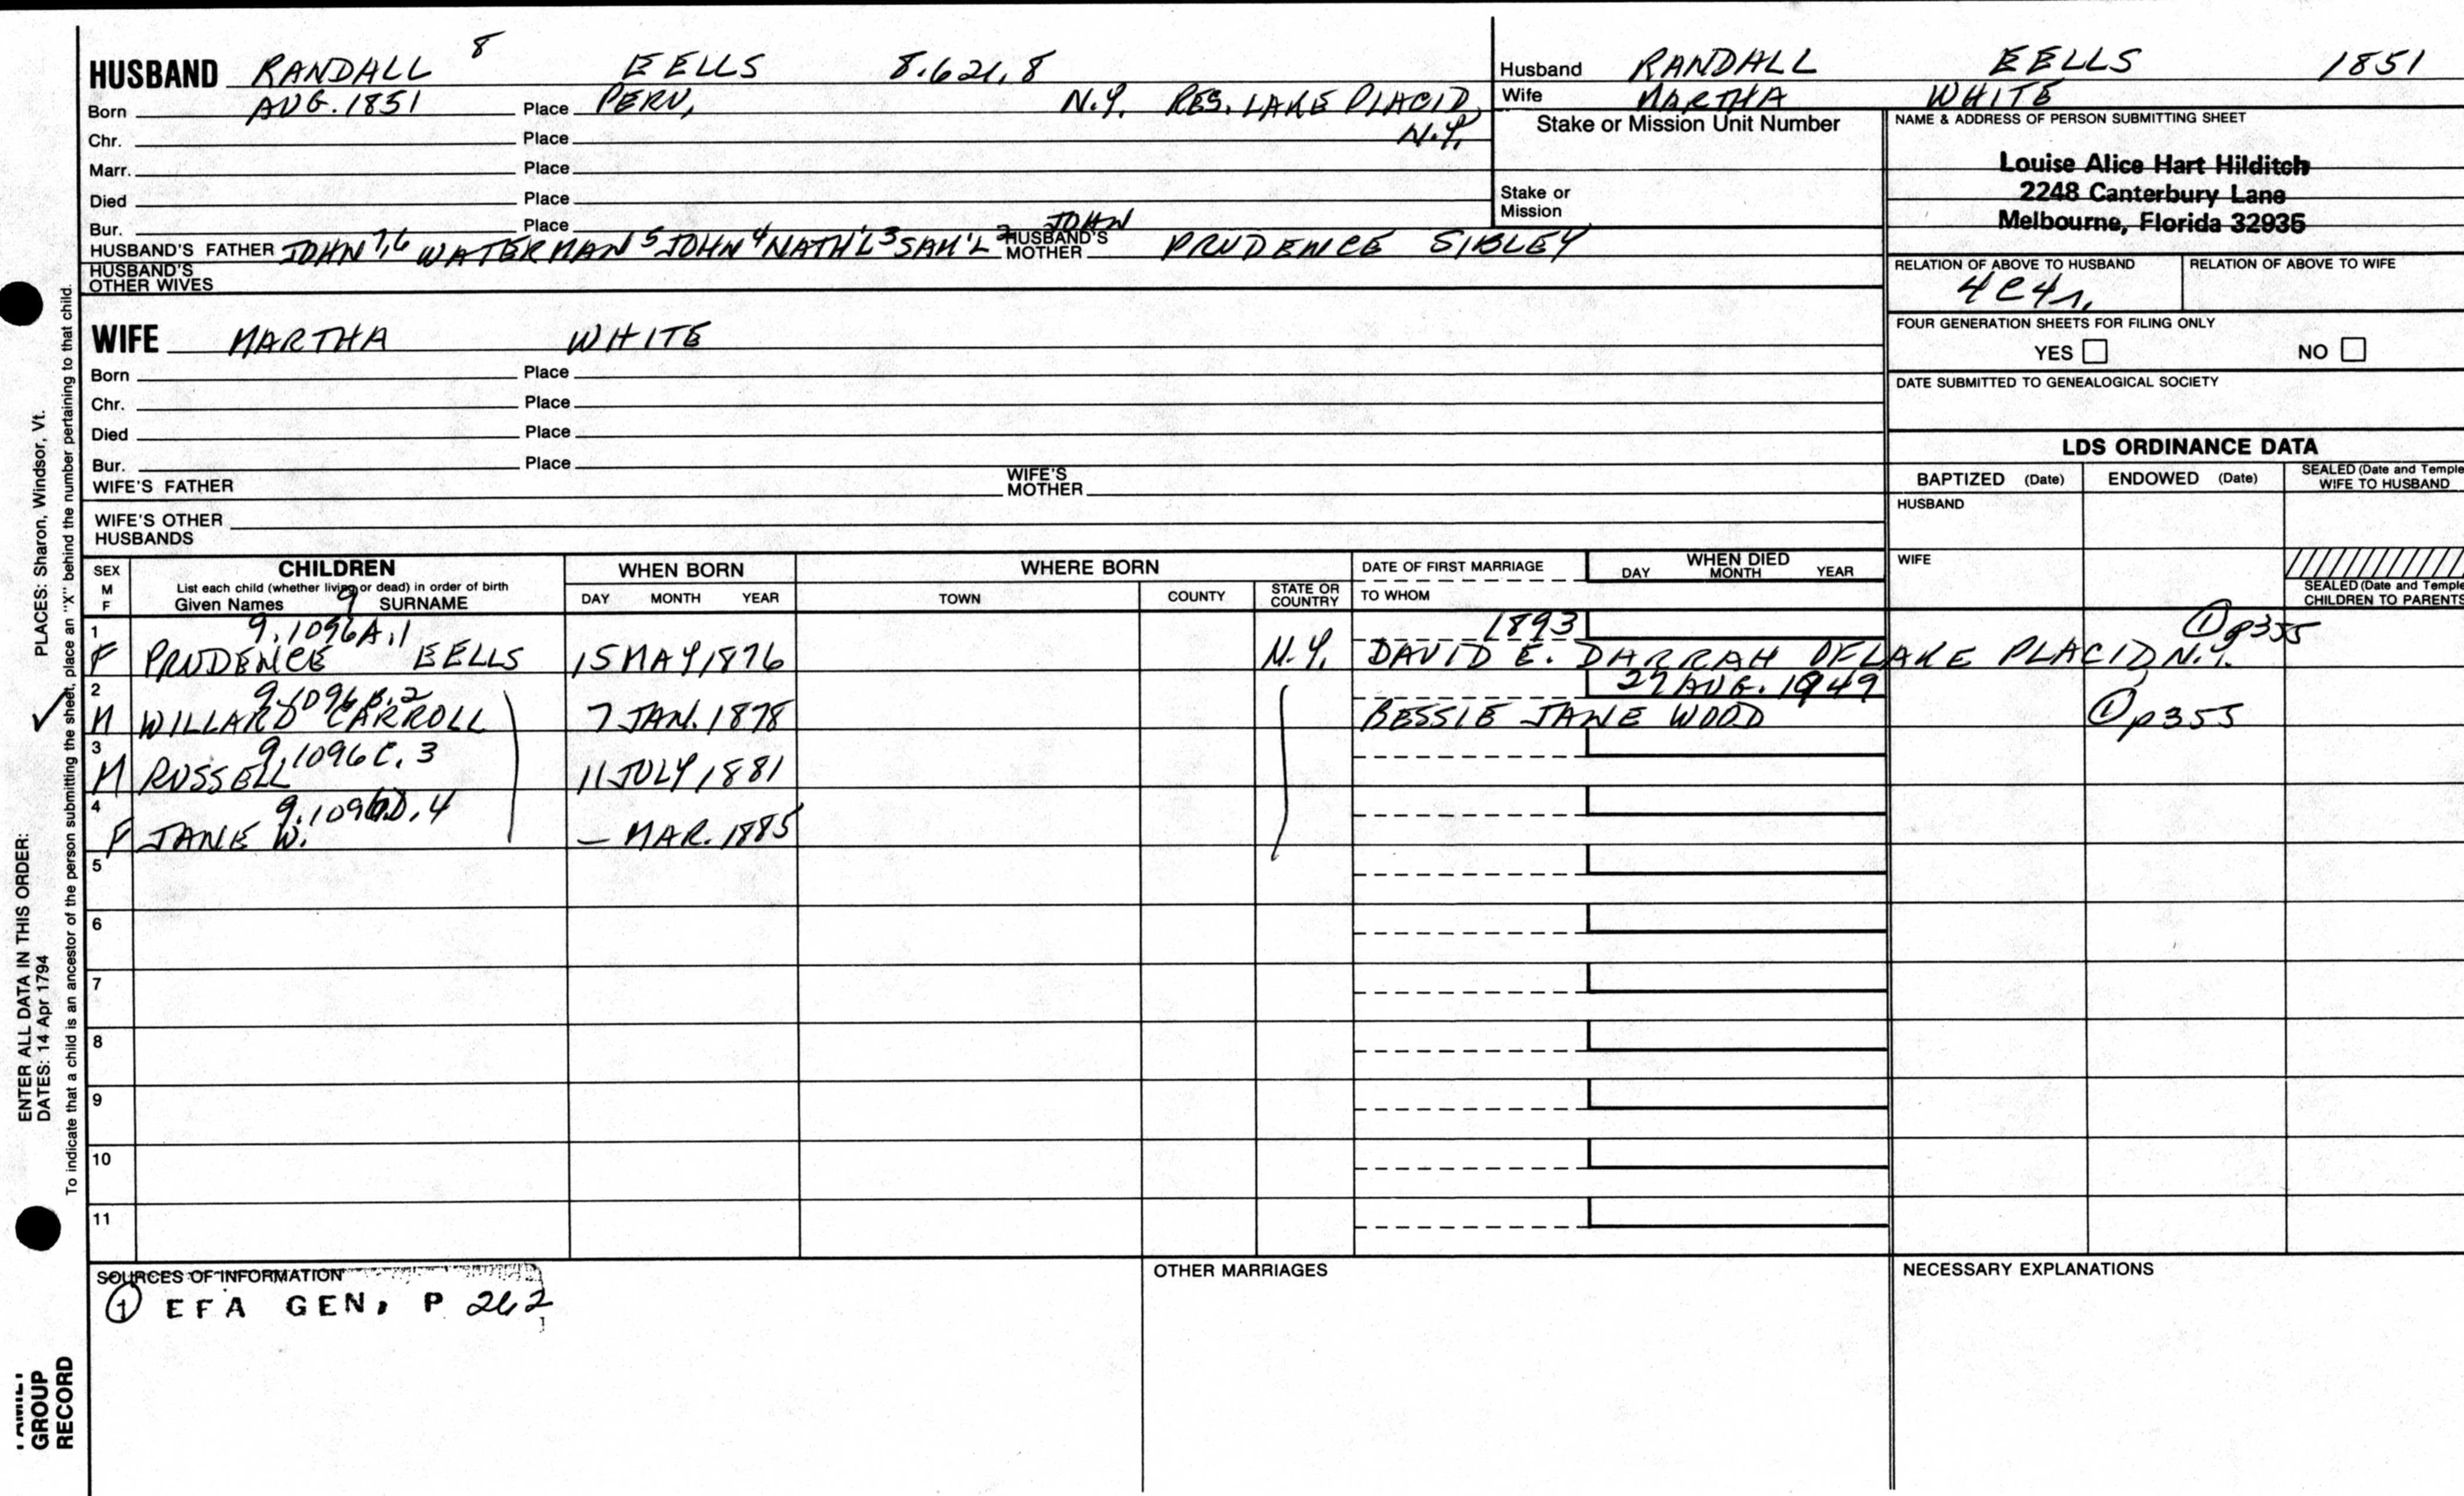 HUSBAND RANDALL 8 EELLS 8.621.8
Born AUG. 1851 Place PERU, N.Y. RES. LAKE PLACID
Chr. Place N.Y.
Marr. Place
Died Place
Bur. Place
HUSBAND'S FATHER JOHN 7,6 WATERMAN 5 JOHN 4 NATH'L 3 SAM'L 2 JOHN HUSBAND'S MOTHER PRUDENCE SIBLEY
HUSBAND'S OTHER WIVES
WIFE MARTHA WHITE
Born Place
Chr. Place
Died Place
Bur. Place
WIFE'S FATHER WIFE'S MOTHER
WIFE'S OTHER HUSBANDS
Husband RANDALL EELLS 1851
Wife MARTHA WHITE
Stake or Mission Unit Number
Stake or Mission
NAME & ADDRESS OF PERSON SUBMITTING SHEET
Louise Alice Hart Hilditch
2248 Canterbury Lane
Melbourne, Florida 32935
RELATION OF ABOVE TO HUSBAND RELATION OF ABOVE TO WIFE
4C4r.
FOUR GENERATION SHEETS FOR FILING ONLY
YES NO
DATE SUBMITTED TO GENEALOGICAL SOCIETY
LDS ORDINANCE DATA
BAPTIZED (Date) ENDOWED (Date) SEALED (Date and Temple
WIFE TO HUSBAND
HUSBAND
WIFE
SEALED (Date and Temple
CHILDREN TO PARENTS
SEX M F CHILDREN WHEN BORN WHERE BORN DATE OF FIRST MARRIAGE WHEN DIED
List each child (whether living or dead) in order of birth
Given Names 9 SURNAME DAY MONTH YEAR TOWN COUNTY STATE OR COUNTRY TO WHOM DAY MONTH YEAR
1 9.1096A.1 1893 ① p355
F PRUDENCE EELLS 15 MAY 1876 N.Y. DAVID E. DARRAH OF LAKE PLACID, N.Y.
2 9.1096B.2 27 AUG. 1949
M WILLARD CARROLL 7 JAN. 1878 BESSIE JANE WOOD ① p355
3 9.1096C.3
M RUSSELL 11 JULY 1881
4 9.1096D.4
F JANE W. — MAR. 1885
5
6
7
8
9
10
11
SOURCES OF INFORMATION OTHER MARRIAGES NECESSARY EXPLANATIONS
① EFA GEN, P 262
PLACES: Sharon, Windsor, Vt.
ENTER ALL DATA IN THIS ORDER:
DATES: 14 Apr 1794
To indicate that a child is an ancestor of the person submitting the sheet, place an "X" behind the number pertaining to that child.
GROUP
RECORD